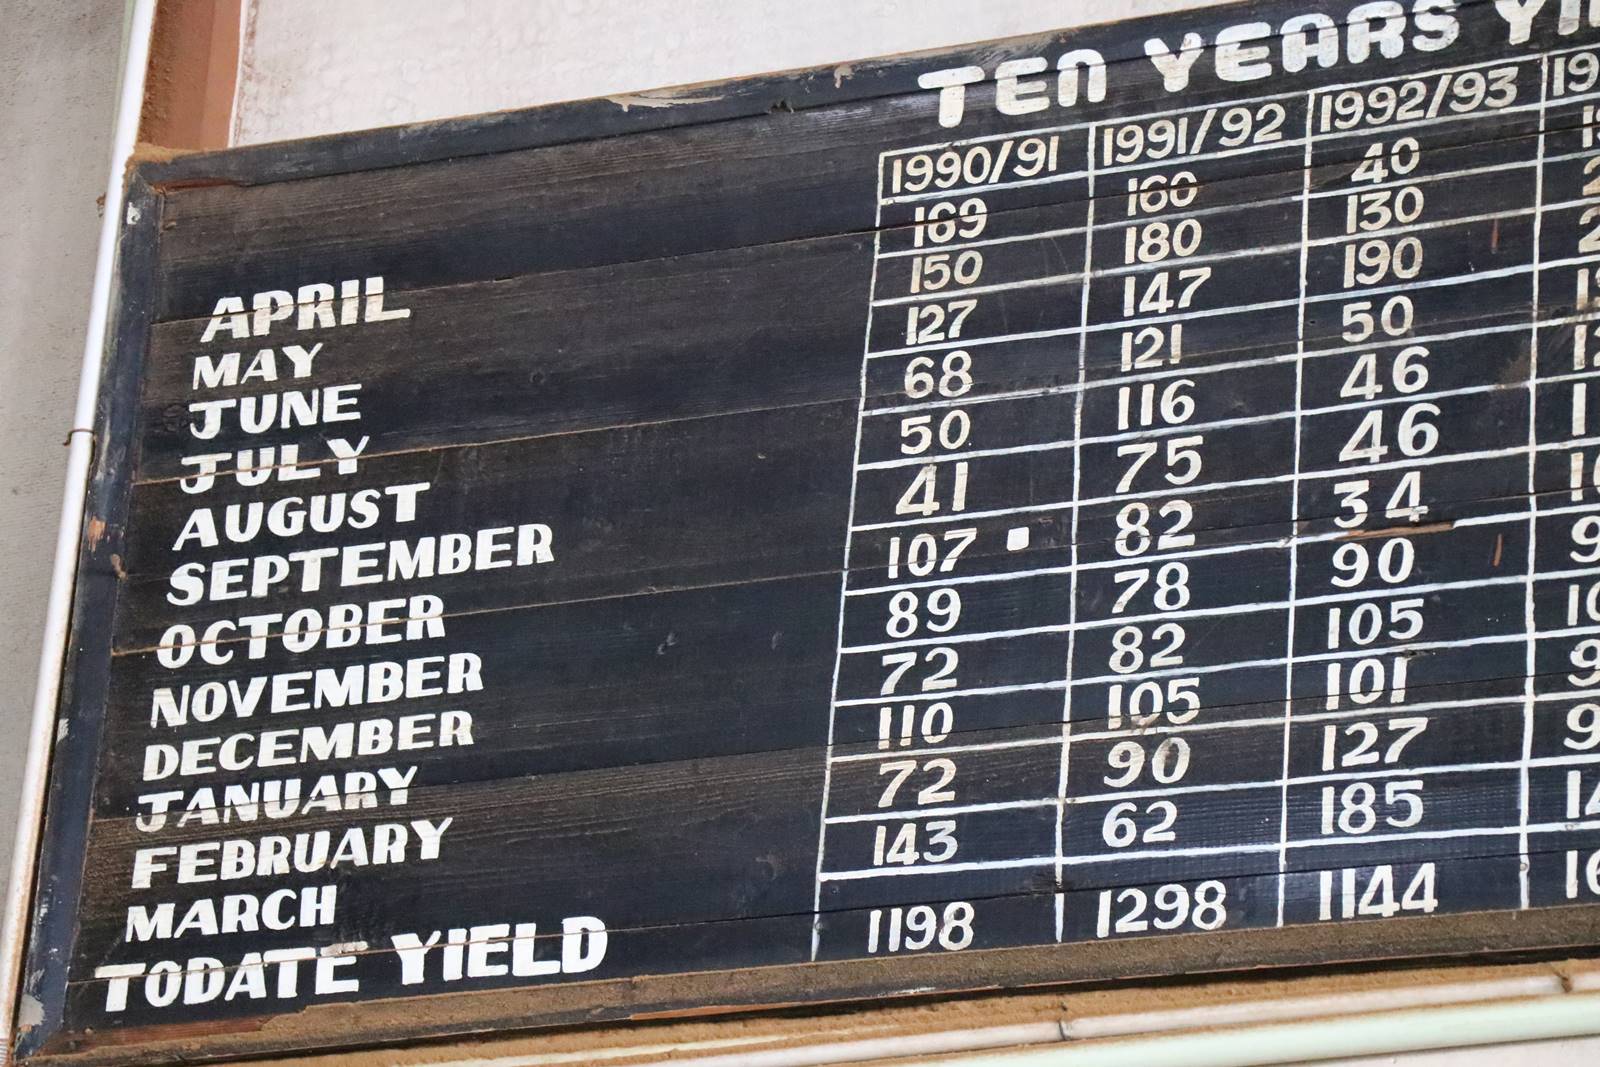 TEN YEARS
1990/91 1991/92 1992/93
APRIL 169 160 40
MAY 150 180 130
JUNE 127 147 190
JULY 68 121 50
AUGUST 50 116 46
SEPTEMBER 41 75 46
OCTOBER 107 82 34
NOVEMBER 89 78 90
DECEMBER 72 82 105
JANUARY 110 105 101
FEBRUARY 72 90 127
MARCH 143 62 185
TODATE YIELD 1198 1298 1144